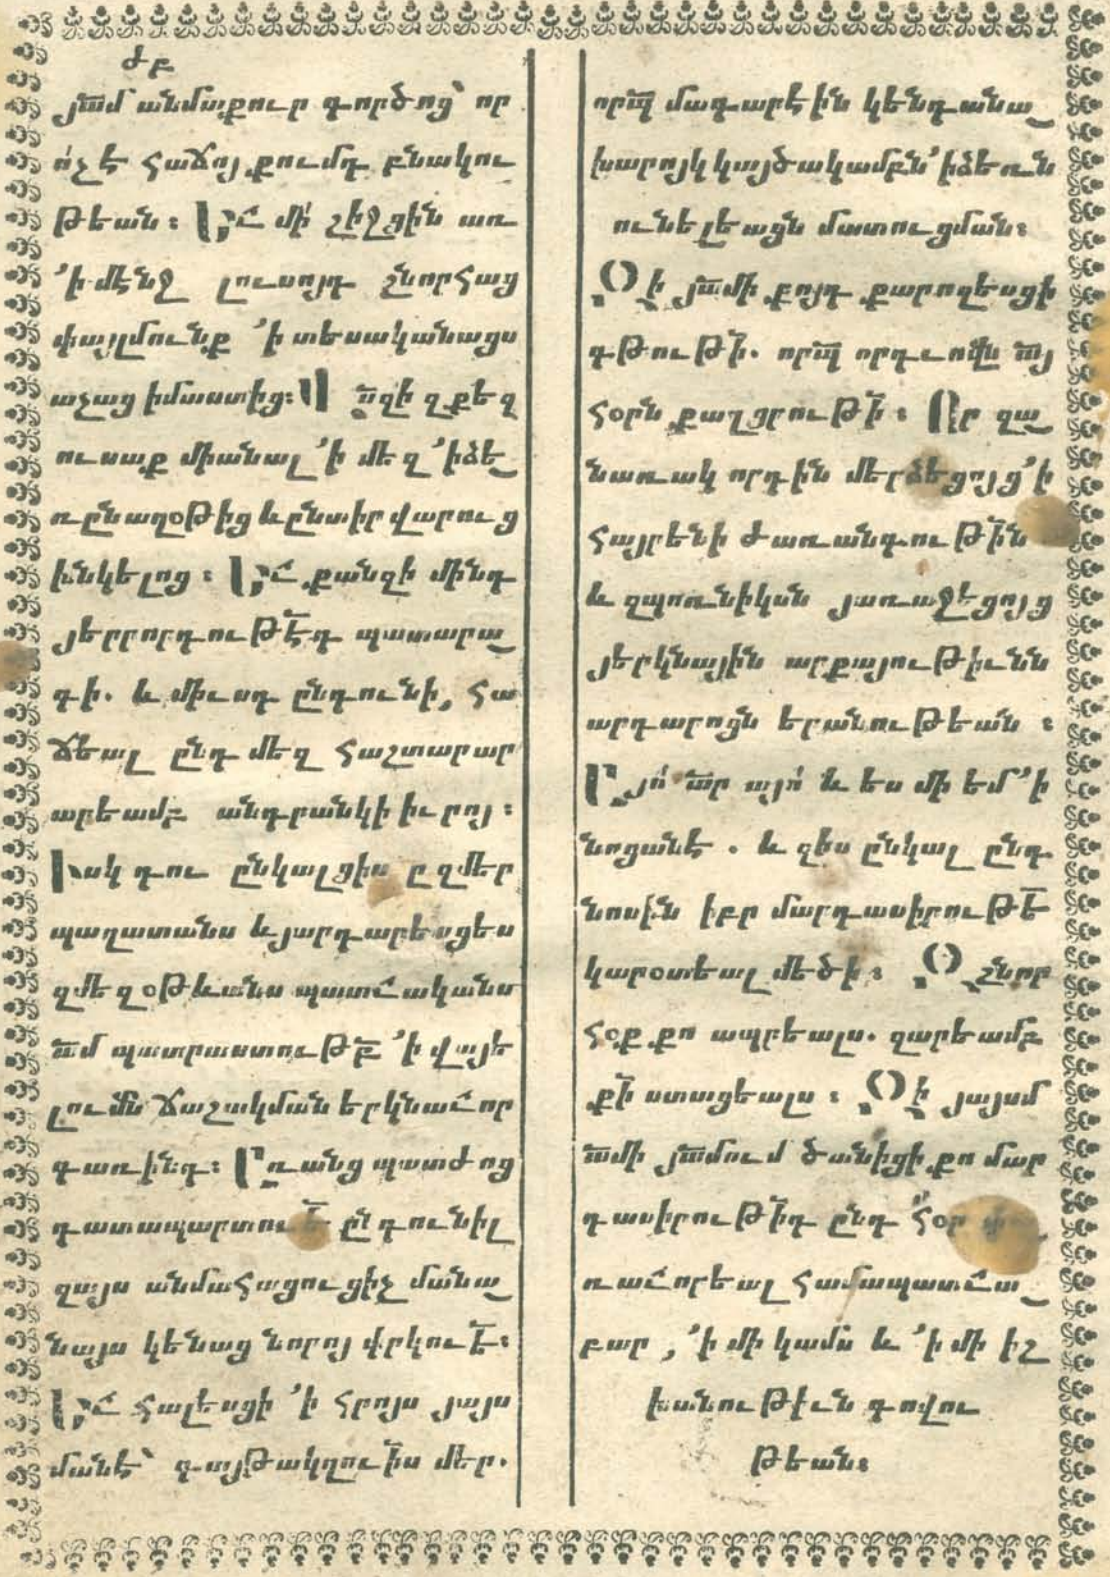 ժբ
յա՟մ անմաքուր գործոց՝ որ
ո՛չ է հաճոյ քումդ բնակու
թեան։ Եւ մի՛ շիջցին առ
ʼի մէնջ լուսոյդ շնորհաց
փայլմունք ʼի տեսականացս
աչաց իմաստից։ Ա՟ղ զի զքեզ
ուսաք միանալ ʼի մեզ ʼի ձե
ռըն աղօթից և ընտիր վարուց
խնկելոց։ Եւ քանզի մինդ
յերրորդութէ՟դ պատարա
գի. և միւսդ ընդունի, հա
ճեալ ընդ մեզ հաշտարար
արեամբ անդրանկի իւրոյ։
Իսկ դու ընկալցիս ը՟զմեր
պաղատանս և յարդարեսցես
զմեզ օթևանս պատուականս
ա՟մ պատրաստութբ՟ ʼի վայե
լումն ճաշակման երկնաւոր
գառինդ։ Առանց պատժոց
դատապարտու ընդունիլ
զայս անմահացուցիչ մանա
նայս կենաց նորոյ փրկուէ՟։
Եւ հալեսցի ʼի հրոյս յայս
մանէ՝ գայթակղուի՟ս մեր.
որպ՟ մագարէին կենդանա
խարոյկ կայծակամբն ʼի ձեռն
ունելեացն մատուցման։
Զի յա՟մի քոյդ քարոզեսցի
գթութի՟. որպ՟ որդւովն ա՟յ
հօրն քաղցրութի՟։ Որ զա
նառակ որդին մերձեցոյց ʼի
հայրենի ժառանգութի՟ն
և զպոռնիկսն յառաջեցոյց
յերկնային արքայութիւնն
արդարոցն երանութեան։
Այո՛ տ՟ր այո՛ և ես մի եմ ʼի
նոցանէ. և զիս ընկալ ընդ
նոսին իբր մարդասիրութէ՟
կարօտեալ մեծի։ Զշնոր
հօք քո ապրեալս. զարեամբ
քի՟ ստացեալս։ Զի յայսմ
ա՟մի յա՟մում ծանիցի քո մար
դասիրութի՟դ ընդ հօր
ռաւորեալ համապատուա
բար, ʼի մի կամս և ʼի մի իշ
խանութիւն գովու
թեան։